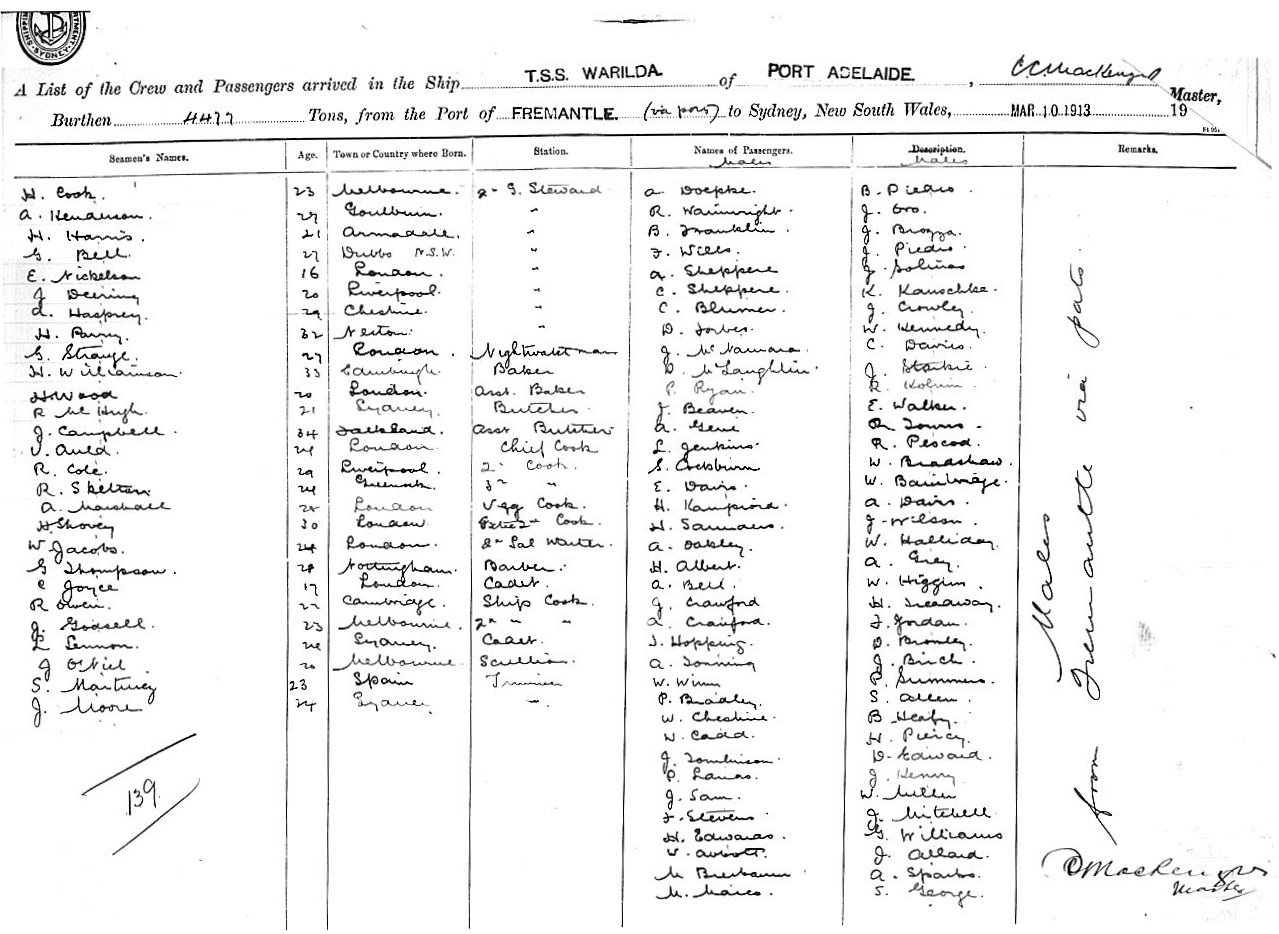 SHIPPING DEPARTMENT SYDNEY
A List of the Crew and Passengers arrived in the Ship T.S.S. WARILDA of PORT ADELAIDE, C.C. MacKenzie Master,
Burthen 4477 Tons, from the Port of FREMANTLE. (via ports) to Sydney, New South Wales, MAR 10 1913 19
Seamen's Names. Age. Town or Country where Born. Station. Names of Passengers. Description. Remarks.
Males Males
H. Cook. 23 Melbourne. 2nd S. Steward A. Doepke. B. Piedro
A. Henderson. 29 Goulburn. " R. Wainwright. J. Gro.
H. Harris. 21 Armadale. " B. Franklin. J. Brozza.
G. Bell. 27 Dubbo N.S.W. " F. Wills. J. Piedro
E. Nickelson 16 London. " A. Sheppere J. Solinas
J. Deering 20 Liverpool. " C. Sheppere. K. Kauschke.
A. Hasprey. 29 Cheshire. " C. Blumer. J. Crowley.
H. Parry. 32 Neston. " D. Forbes. W. Kennedy.
G. Strange. 27 London. Nightwatchman J. McNamara. C. Davies.
H. Williamson. 33 Edinburgh. Baker D. McLaughlin. J. Starkie
H. Wood 20 London. Asst. Baker P. Ryan. R. Kolvin
R. McHugh. 21 Sydney. Butcher J. Beaven. E. Walker.
J. Campbell. 34 Falkland. Asst Butcher A. Gene
V. Auld. 24 London Chief Cook L. Jenkins. R. Pescod.
R. Cole. 29 Liverpool. 2nd Cook. S. Cockburn W. Bradshaw.
R. Skelton. 24 Greenock. 3rd " E. Davis. W. Bainbridge.
A. Marshall 28 London Veg Cook. H. A. Davis.
H. Shovey 30 London. Cook. H. J. Wilson.
W. Jacobs. 24 London. 2nd Sal Waiter. A. Oakley. W. Halliday.
G Thompson. 28 Nottingham. Barber. H. Albert. A. Grey.
C Joyce 17 London. Cadet. A. Bell. W. Higgins.
R Owen. 22 Cambridge. Ships Cook. J. Crawford H. Treadway.
J. Godsell. 23 Melbourne. 2nd " " A. Crawford. F. Jordan.
L Lennon. 24 Sydney. Cadet. J. Hopping. D. Bromley.
J O'Niel 20 Melbourne. Scullion. A. Tonning J. Birch.
S. Martinez 23 Spain Trimmer W. Winn R. Summers
J. Moore 24 Sydney " P. Bradley. S. Allen.
W. Cheshire. B Heafy.
W. Cadd. H. Piercy.
J. Tomlinson. D. Edward.
P. Lanas. J. Henry
J. Sam. W. Miller
F. Stevens J. Mitchell
H. Edwards. G. Williams
W. Abbott. J. Allard.
M. A. Sparks.
M. S. George.
139
Males
from Fremantle via ports.
C MacKenzie
Master